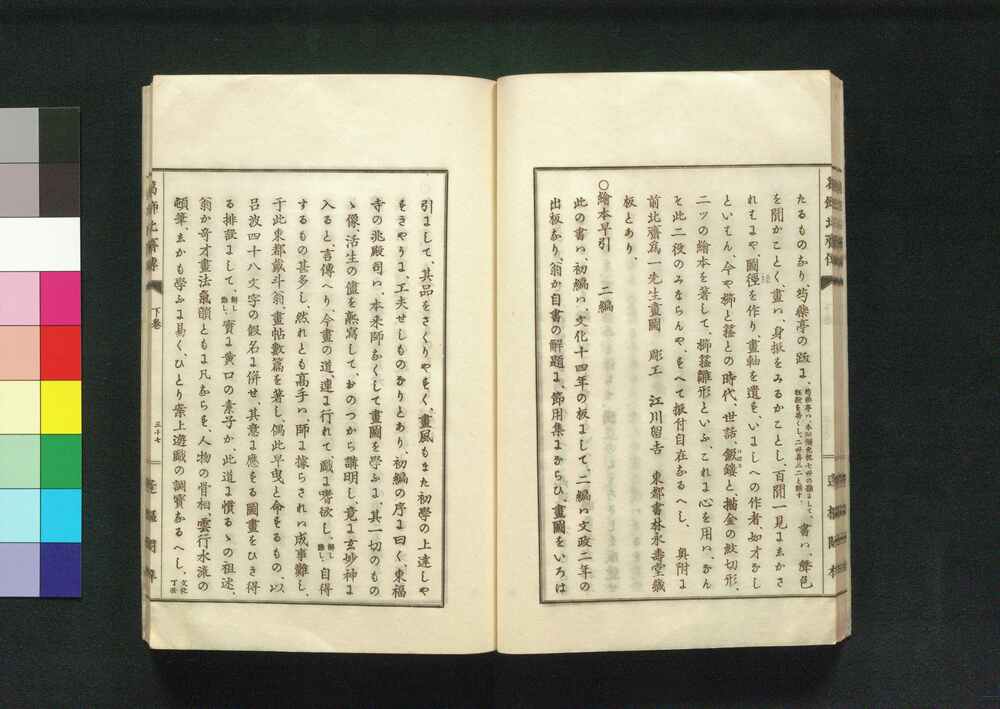 たるものなり、芍藥亭の跋に、芍藥亭ハ、本阿彌光悦七世の孫にして、
狂歌を善くし、二世喜三二と稱す、書ハ、聲色
を聞かことく、畫ハ、身振をみるかことし、百聞一見にしかさ
れはにや、圖徑を作り、畫軸を遺を、いにしへの作者、如才なし
といはん、今や櫛と簪との時代、世話、鍛鏤と、描金の紋切形、
二ツの繪本を著して、櫛簪雛形といふ、これに心を用ハ、なん
そ此二役のみならんや、をへて振付自在なるへし、 奥附に
前北齋爲一先生畫圖 彫工 江川留吉 東都書林永壽堂藏
板とあり、
○繪本早引 二編
此の書ハ、初編ハ、文化十四年の板にして、二編ハ文政二年の
出板なり、翁か自書の解題に、節用集にならひ、畫圖をいろは
引にして、其品をさくりやをく、畫風もまた初學の上達しや
をきやうに、工夫せしものなりとあり、初編の序に曰く、東福
寺の兆殿司ハ、本来師なくして畫圖を學ふに、其一切のもの
ゝ像、活生の儘を熟寫して、おのつから講明し、竟に玄妙神に
入ると、言傳へり、今畫の道、連に行れて、戯に嗜欲し、解し
難し、自得
するもの甚多し、然れとも高手ハ、師に據らされハ成事難し、
于此東都戴斗翁、畫帖數篇を著し、偶此早曳と命をるもの、以
呂波四十八文字の假名に併せ、其意に應をる圖畫をひき得
る排設にして、解し
難し、實に黄口の素子か、此道に慣るゝの祖述、
翁か奇才畫法氣韻ともに凡ならを、人物の骨相、雲行水流の
頓筆、しかも学ふに易く、ひとり案上遊戯の調寶なるへし、文化
丁丑
下巻
三十七